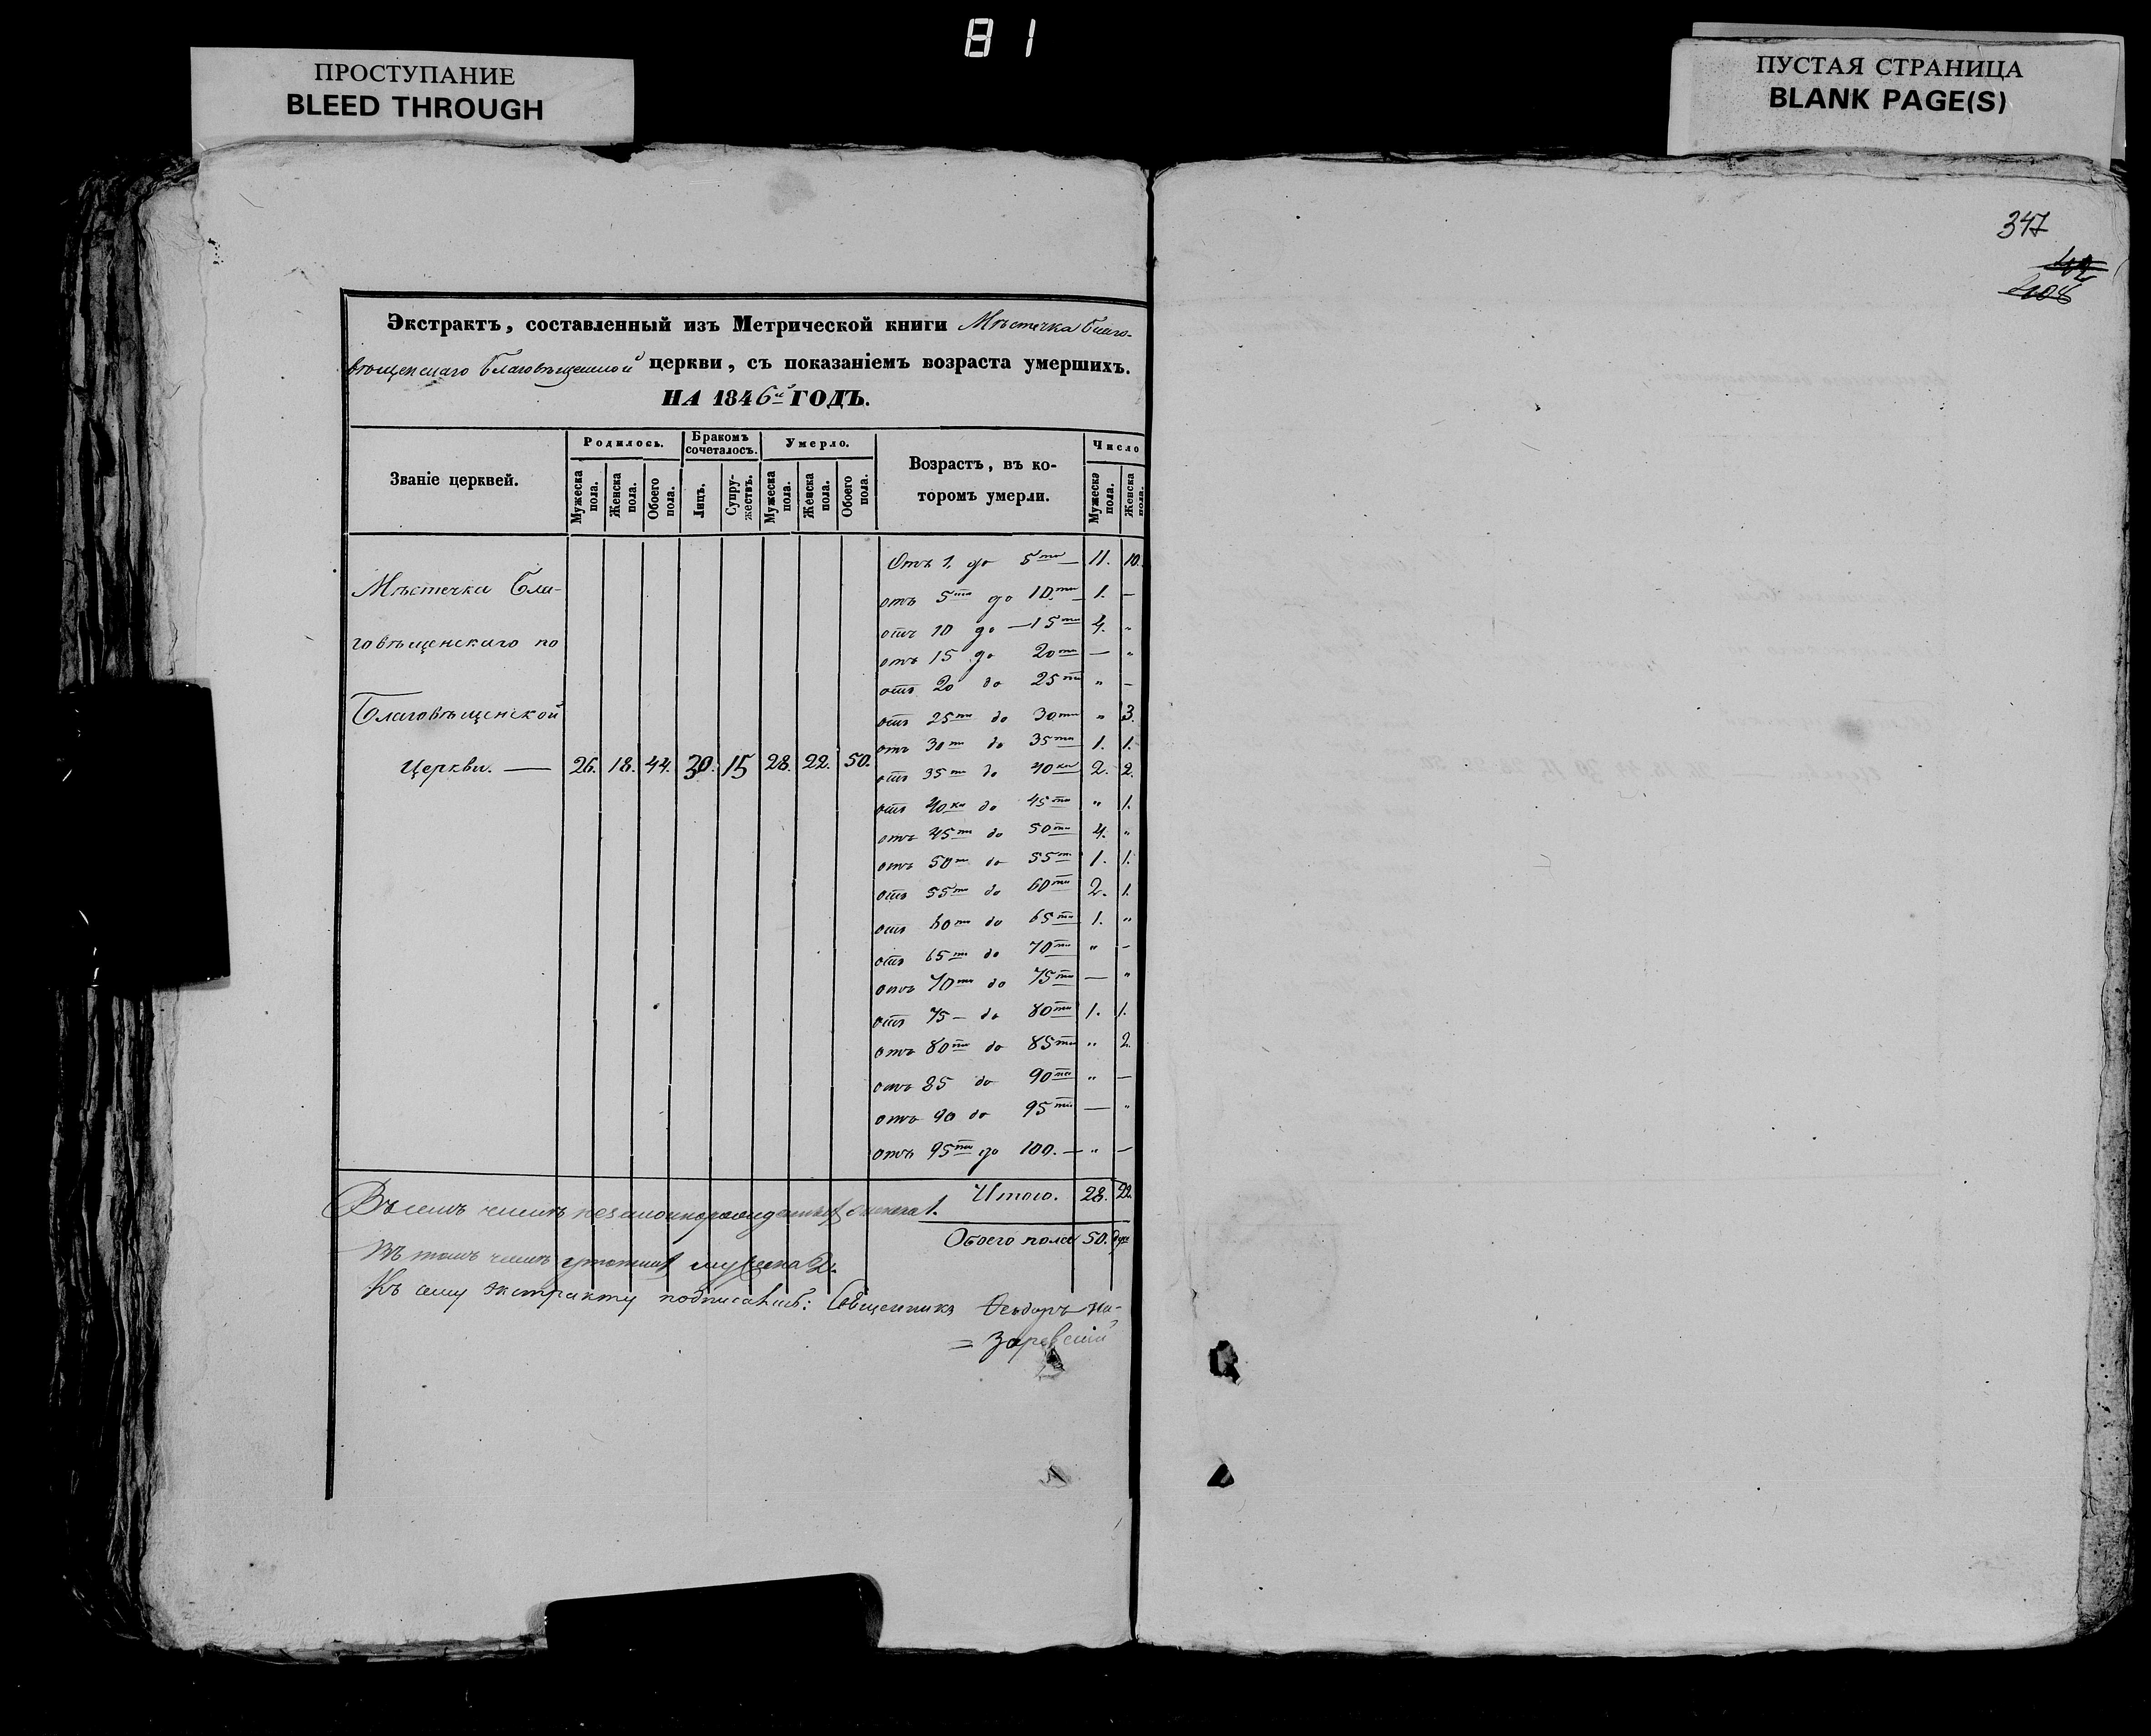 81
ПРОСТУПАНИЕ
BLEED THROUGH
ПУСТАЯ СТРАНИЦА
BLANK PAGE(S)
347
Экстрактъ, составленный изъ Метрической книги Мѣстечка Благо-
вѣщенскаго Благовѣщенской церкви, съ показаніемъ возраста умершихъ.
НА 1846й ГОДЪ.
Званіе церквей.
Родилось.
Бракомъ сочеталось.
Умерло.
Возрастъ, въ ко-
торомъ умерли.
Число
Мужеска пола.
Женска пола.
Обоего пола.
Лицъ.
Супру-жествъ.
Мужеска пола.
Женска пола.
Обоего пола.
Мужеска пола.
Женска пола.
Отъ 1. до 5ти — 11. 10.
Мѣстечка Бла-
отъ 5ти до 10.ти 1. —
отъ 10 до — 15ти 4. "
говѣщенскаго по
отъ 15 до 20ти — "
отъ 20 до 25ти " —
Благовѣщенской
отъ 25ти до 30ти " 3.
отъ 30ти до 35ти 1. 1.
Церкви. — 26. 18. 44. 30. 15 28. 22. 50.
отъ 35ти до 40ка 2. 2.
отъ 40ка до 45ти " 1.
отъ 45ти до 50ти 4. "
отъ 50ти до 55ти 1. 1.
отъ 55ти до 60ти 2. 1.
отъ 60ти до 65ти 1. "
отъ 65ти до 70ти " —
отъ 70ти до 75ти — "
отъ 75 — до 80ти 1. 1.
отъ 80ти до 85ти " 2.
отъ 85 до 90ти " —
отъ 90 до 95ти — "
отъ 95ти до 100. — " —
Итого. 28. 22.
Въ семъ числѣ незаконнорожденныхъ 1.
Обоего пола 50.
Въ томъ числѣ 2.
Къ сему экстракту подписались: Священникъ Ѳеодоръ На-
= заревскій